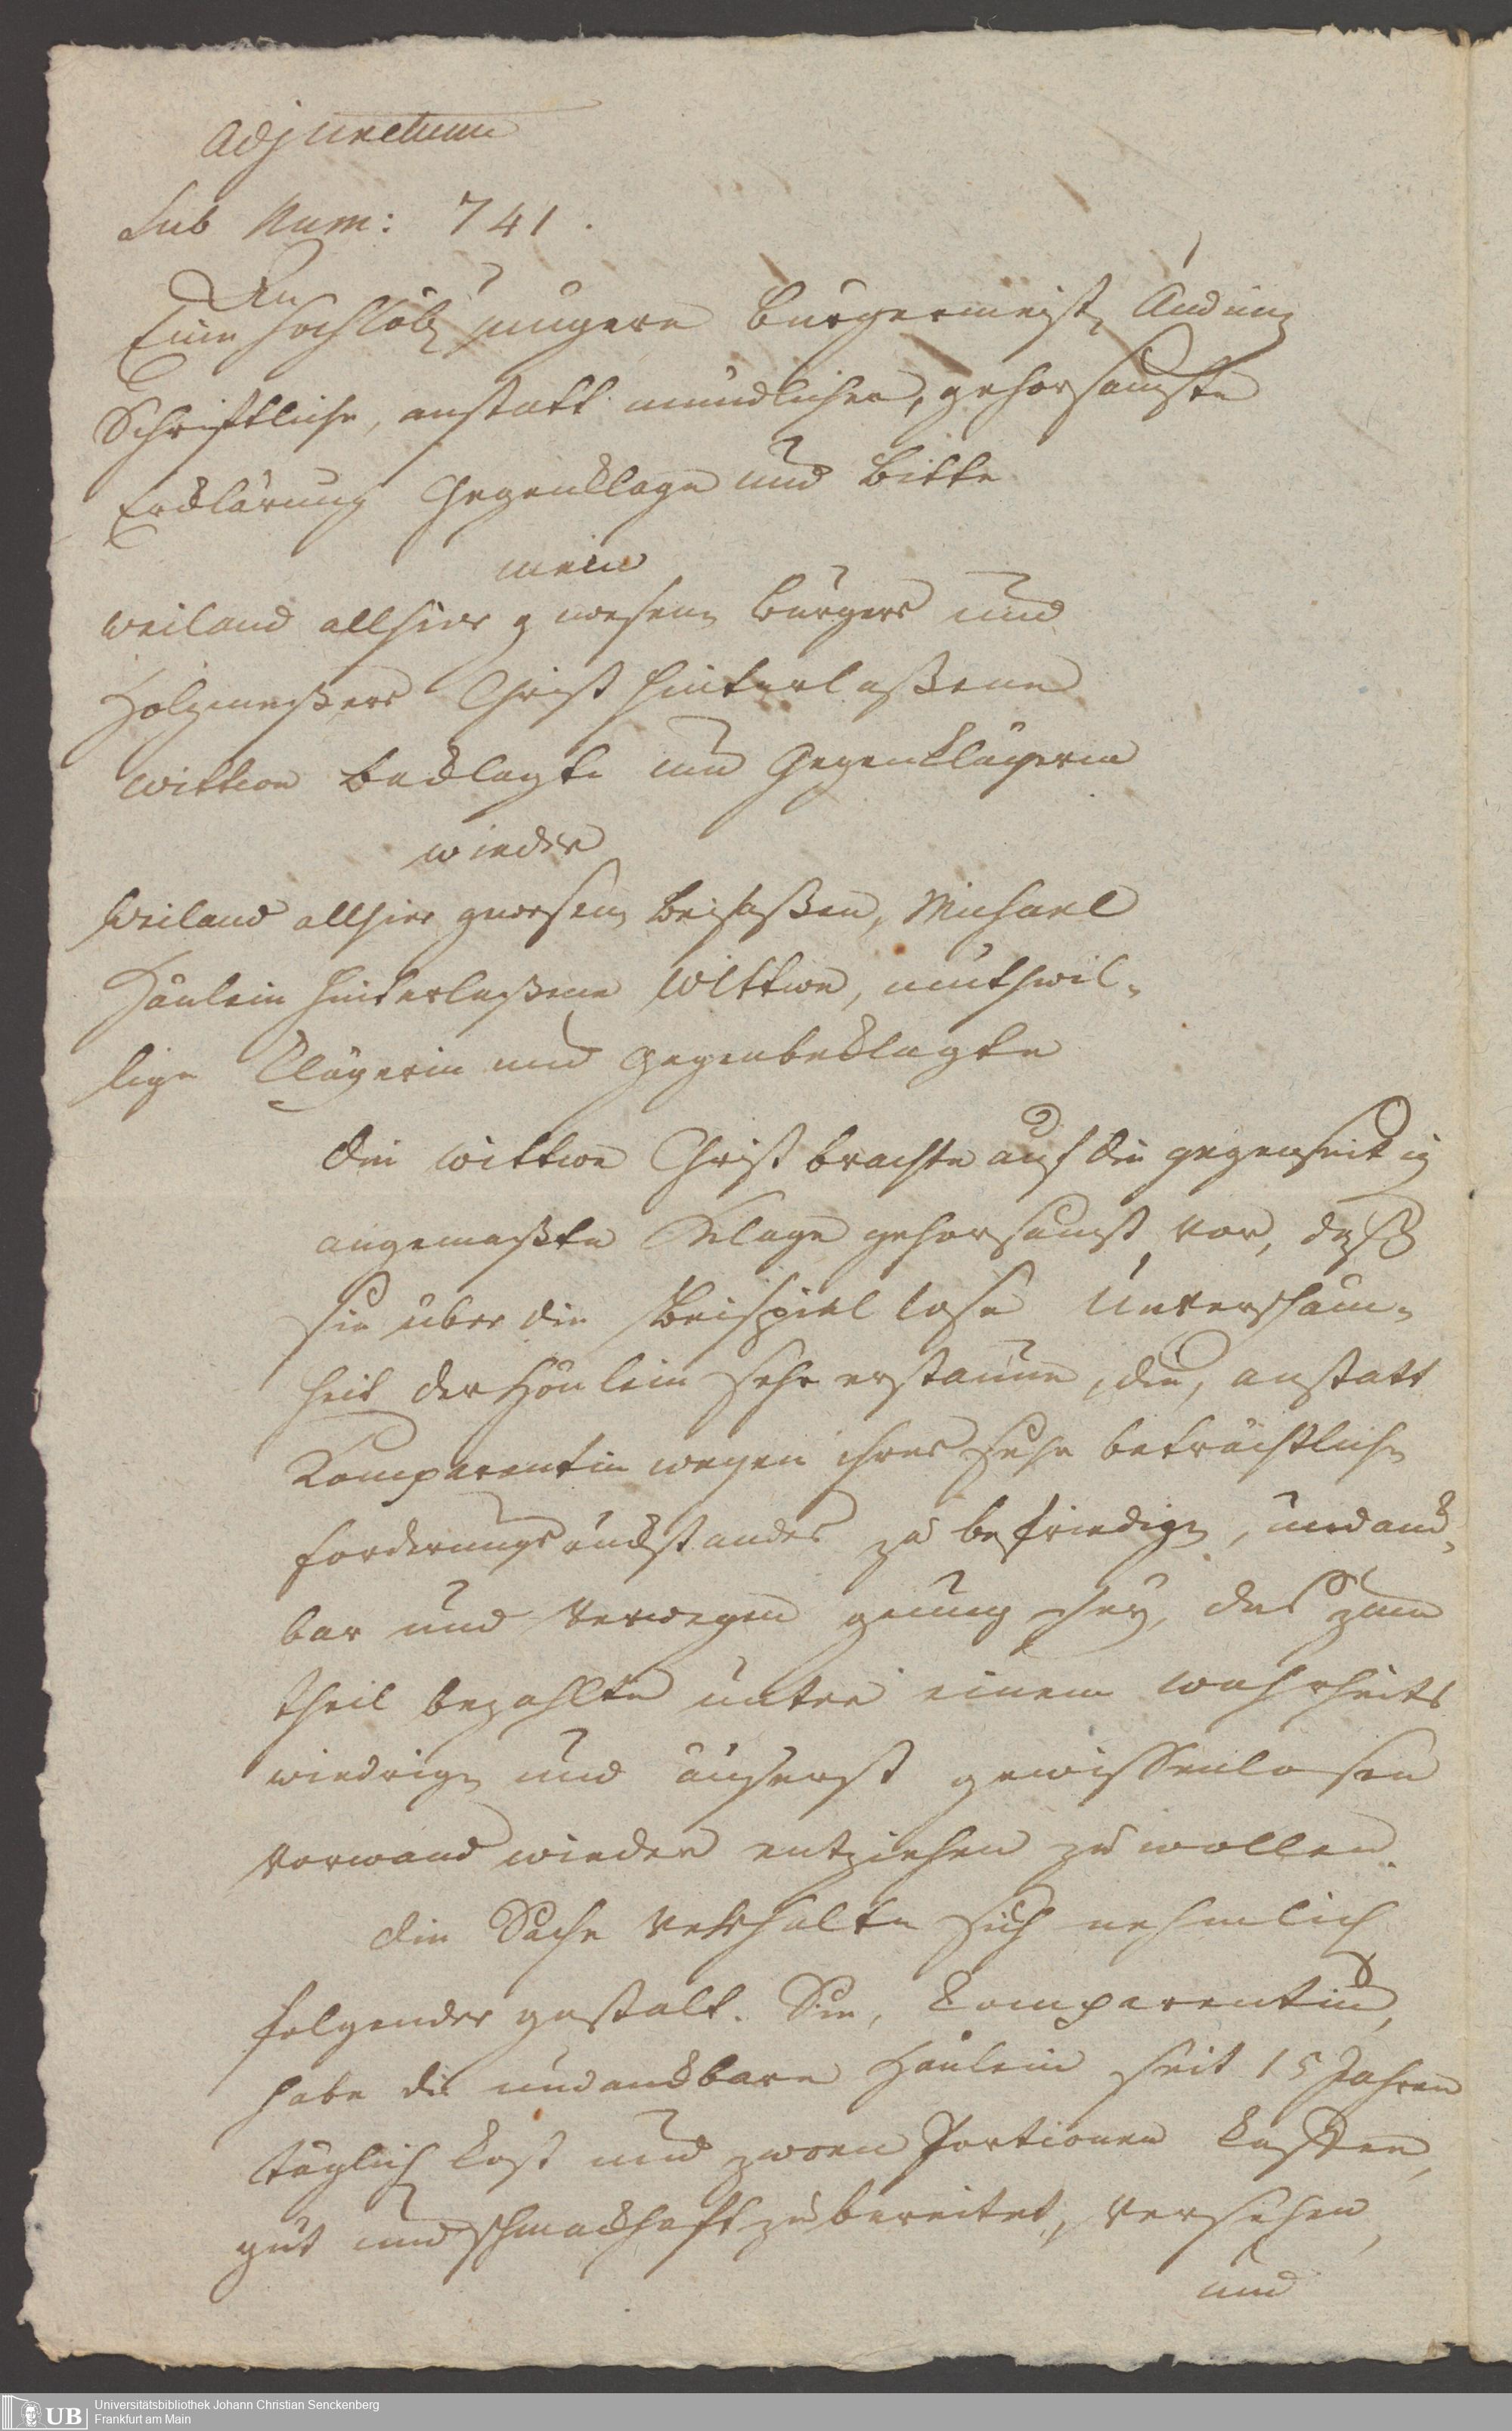 Adjunctum
Sub Num: 741.
An
Eine hochlöb jüngere Burgermeist Audienz
Schriftliche, anstatt mündlicher, gehorsamste
Erklärung Gegenklage und Bitte
mein
weiland allhier gewesen Burgers und
Holzmessers Christ hinterlaßene
Wittwe Beklagte und Gegenklägerin
wieder
Weiland allhier gewesen Beisaßen, Michael
Häulein hinterlaßene Wittwe, muthwil-
lige Klägerin und Gegenbeklagte
Die Wittwe Christ brachte auf die gegenseitig
angemaßte Klage gehorsamst vor, daß
sie über die Beispiel lose Unverscham-
heit der Häulein sehr erstaune, die, anstatt
Komparentin wegen ihres sehr beträchtlich
forderungsrückstandes zu befriedig, undank-
bar und verwegen genug sey, das zum
theil bezahlte unter einem wahrheits
wiedrig und äußerst gewissenlosen
Vorwand wieder entziehen zu wollen.
Die Sache verhalte sich nehmlich
folgender gestalt. Sie, Komparentin,
habe die undankbare Häulein seit 15 Jahren
täglich Kost und zwoen Portionen Kaffee,
gut und schmackhaft zubereitet, versehen,
und
Universitätsbibliothek Johann Christian Senckenberg
UB Frankfurt am Main